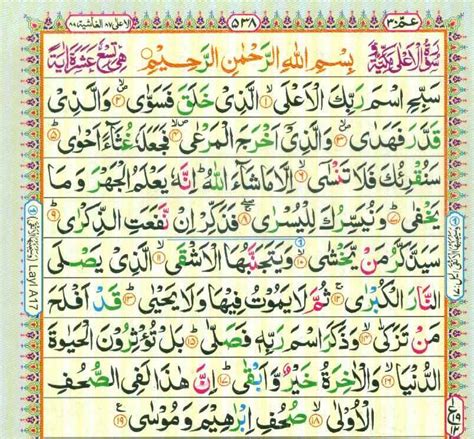 عمّ ٣٠ ٥٣٨ الاعلى ٨٧ الغاشية ٨٨
سُوْرَةُ الْاَعْلٰى مَكِّيَّةٌ بِسْمِ اللهِ الرَّحْمٰنِ الرَّحِيْمِ هِىَ تِسْعَ عَشْرَةَ اٰيَةً
سَبِّحِ اسْمَ رَبِّكَ الْاَعْلَى ۙ﴿۱﴾ الَّذِىْ خَلَقَ فَسَوّٰى ۙ﴿۲﴾ وَالَّذِىْ
قَدَّرَ فَهَدٰى ۙ﴿۳﴾ وَالَّذِىْٓ اَخْرَجَ الْمَرْعٰى ۙ﴿۴﴾ فَجَعَلَهٗ غُثَآءً اَحْوٰى ؕ﴿۵﴾
سَنُقْرِئُكَ فَلَا تَنْسٰٓى ۙ﴿۶﴾ اِلَّا مَا شَآءَ اللهُ ؕ اِنَّهٗ يَعْلَمُ الْجَهْرَ وَ مَا
يَخْفٰى ؕ﴿۷﴾ وَنُيَسِّرُكَ لِلْيُسْرٰى ۚۖ﴿۸﴾ فَذَكِّرْ اِنْ نَّفَعَتِ الذِّكْرٰى ؕ﴿۹﴾
سَيَذَّكَّرُ مَنْ يَّخْشٰى ۙ﴿۱۰﴾ وَيَتَجَنَّبُهَا الْاَشْقَى ۙ﴿۱۱﴾ الَّذِىْ يَصْلَى
النَّارَ الْكُبْرٰى ۚ﴿۱۲﴾ ثُمَّ لَا يَمُوْتُ فِيْهَا وَلَا يَحْيٰى ؕ﴿۱۳﴾ قَدْ اَفْلَحَ
مَنْ تَزَكّٰى ۙ﴿۱۴﴾ وَذَكَرَ اسْمَ رَبِّهٖ فَصَلّٰى ؕ﴿۱۵﴾ بَلْ تُؤْثِرُوْنَ الْحَيٰوةَ
الدُّنْيَا ۖ﴿۱۶﴾ وَالْاٰخِرَةُ خَيْرٌ وَّاَبْقٰى ؕ﴿۱۷﴾ اِنَّ هٰذَا لَفِى الصُّحُفِ
الْاُوْلٰى ۙ﴿۱۸﴾ صُحُفِ اِبْرٰهِيْمَ وَمُوْسٰى ﴿۱۹﴾
Layl A17